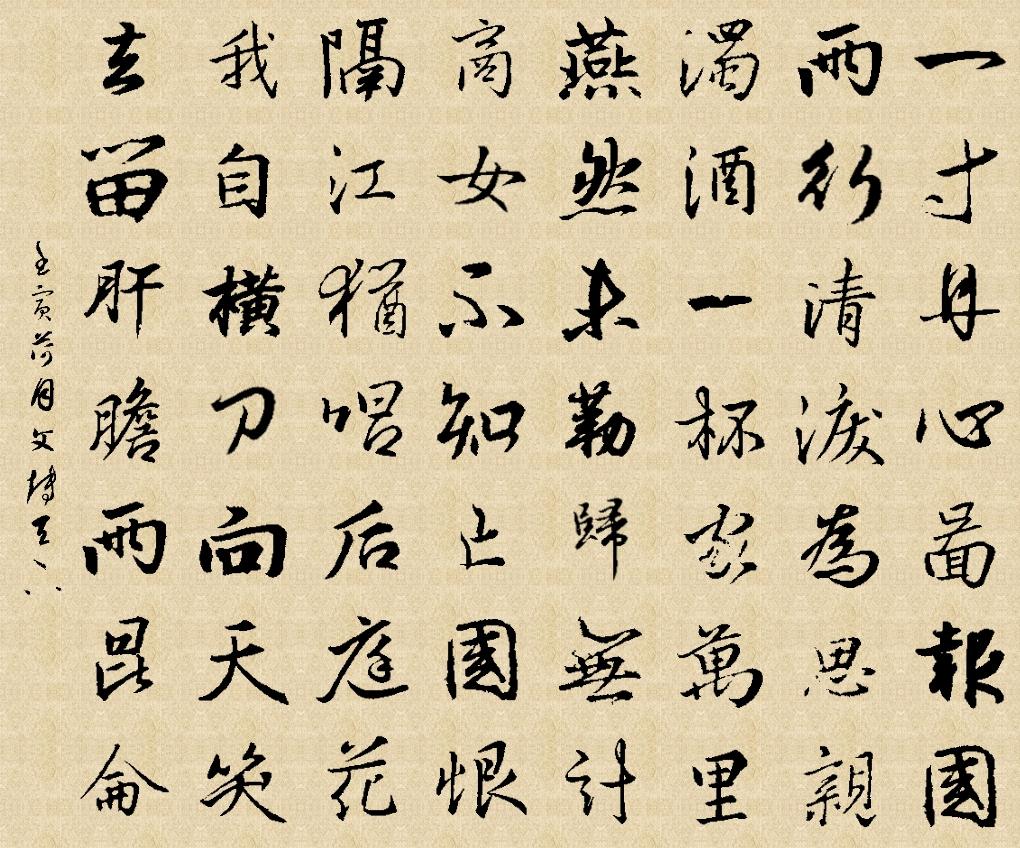 一寸丹心啚報國
兩行清淚為思親
濁酒一杯家萬里
燕然未勒歸無計
商女不知亡國恨
隔江猶唱后庭花
我自橫刀向天笑
去留肝膽兩昆侖
壬寅荷月文博